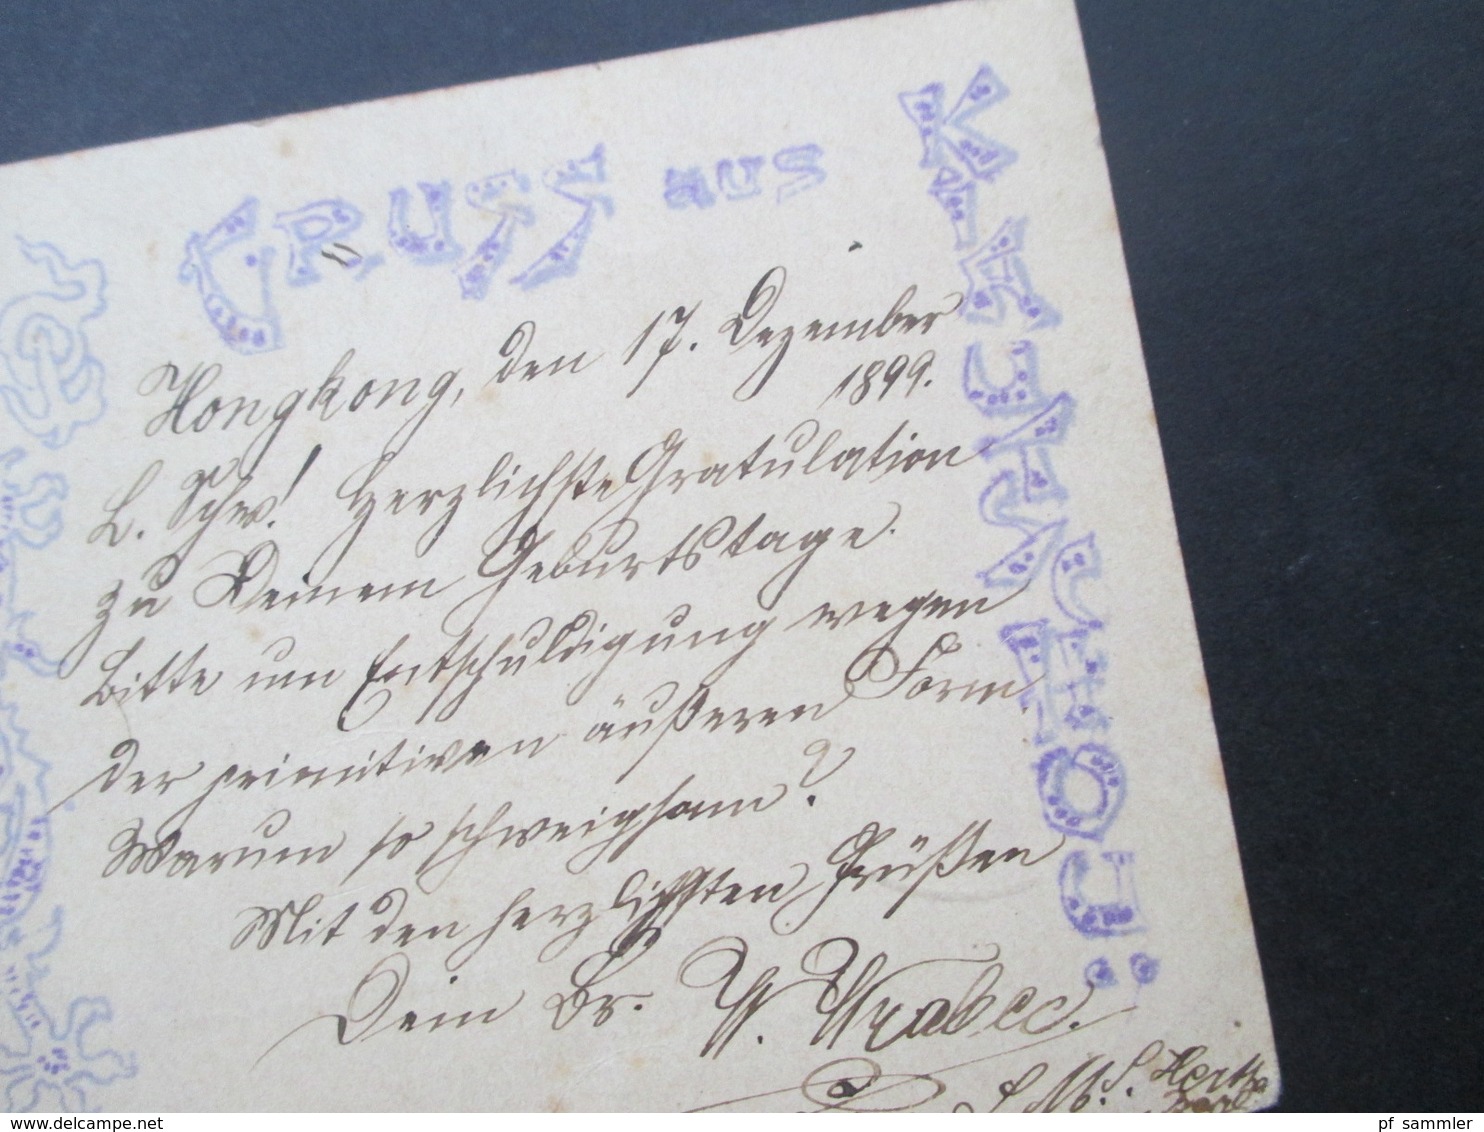 GRUSS aus
KIAUTSCHOU:
Hongkong, den 17. Dezember
1899.
L. Schw! Herzlichste Gratulation
zu Deinem Geburtstage.
Bitte um Entschuldigung wegen
der primitiven äußeren Form.
Warum so schweigsam?
Mit den herzlichsten Grüßen
Dein Br.
S. M. S. Hertha
pf_sammler